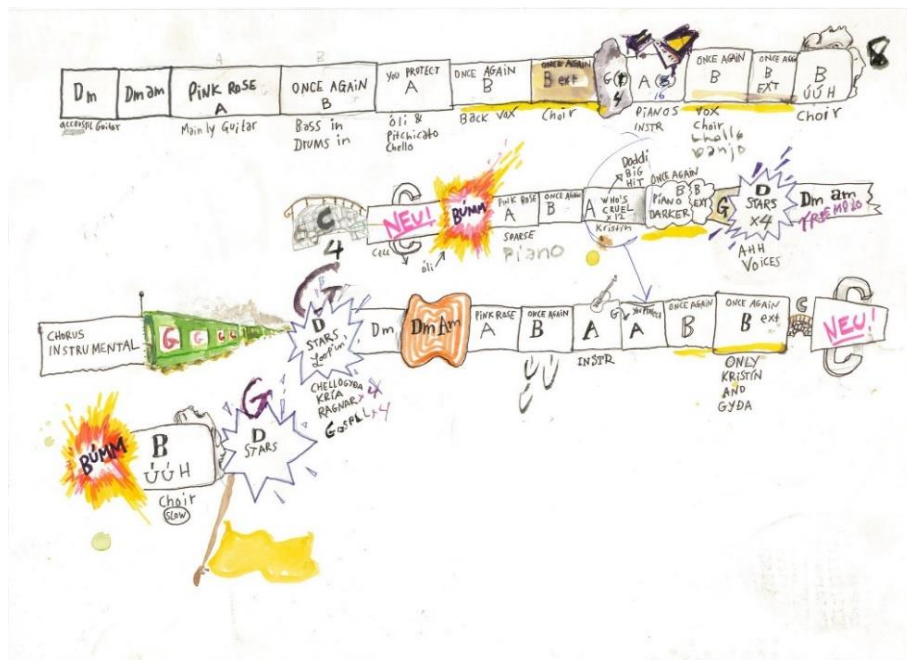 A
B
Dm
Dm am
PINK ROSE
A
ONCE AGAIN
B
YOU PROTECT
A
ONCE AGAIN
B
ONCE AGAIN
B ext
G
4
A
16
ONCE AGAIN
B
ONCE AGAIN
B
EXT
B
ÚÚH
8
Mainly Guitar
Bass in
DRUMS in
óli &
Pitchicato
Chello
Back Vox
Choir
PIANOS
INSTR
Vox
Choir
Chello
banjo
Choir
C
4
C
NEU!
BÚMM
PINK ROSE
A
ONCE AGAIN
B
A
WHO'S
CRUEL
X12
Daddi
BIG
HIT
ONCE AGAIN
B
PIANO
DARKER
B
EXT
G
D
STARS
x4
Dm am
TREMOLO
óli
SPARSE
Piano
Kristín
AHH
VOICES
CHORUS
INSTRUMENTAL
G
G
G
G
G
G
D
STARS
Loopin'
Dm
Dm Am
PINK ROSE
A
ONCE AGAIN
B
A
G
A
ONCE AGAIN
B
ONCE AGAIN
B ext
C
C
NEU!
CHELLO GYÐA
KRÍA
RAGNAR
GOSPELL x4
INSTR
ONLY
KRISTÍN
AND
GYÐA
BÚMM
B
ÚÚH
G
D
STARS
Choir
SLOW